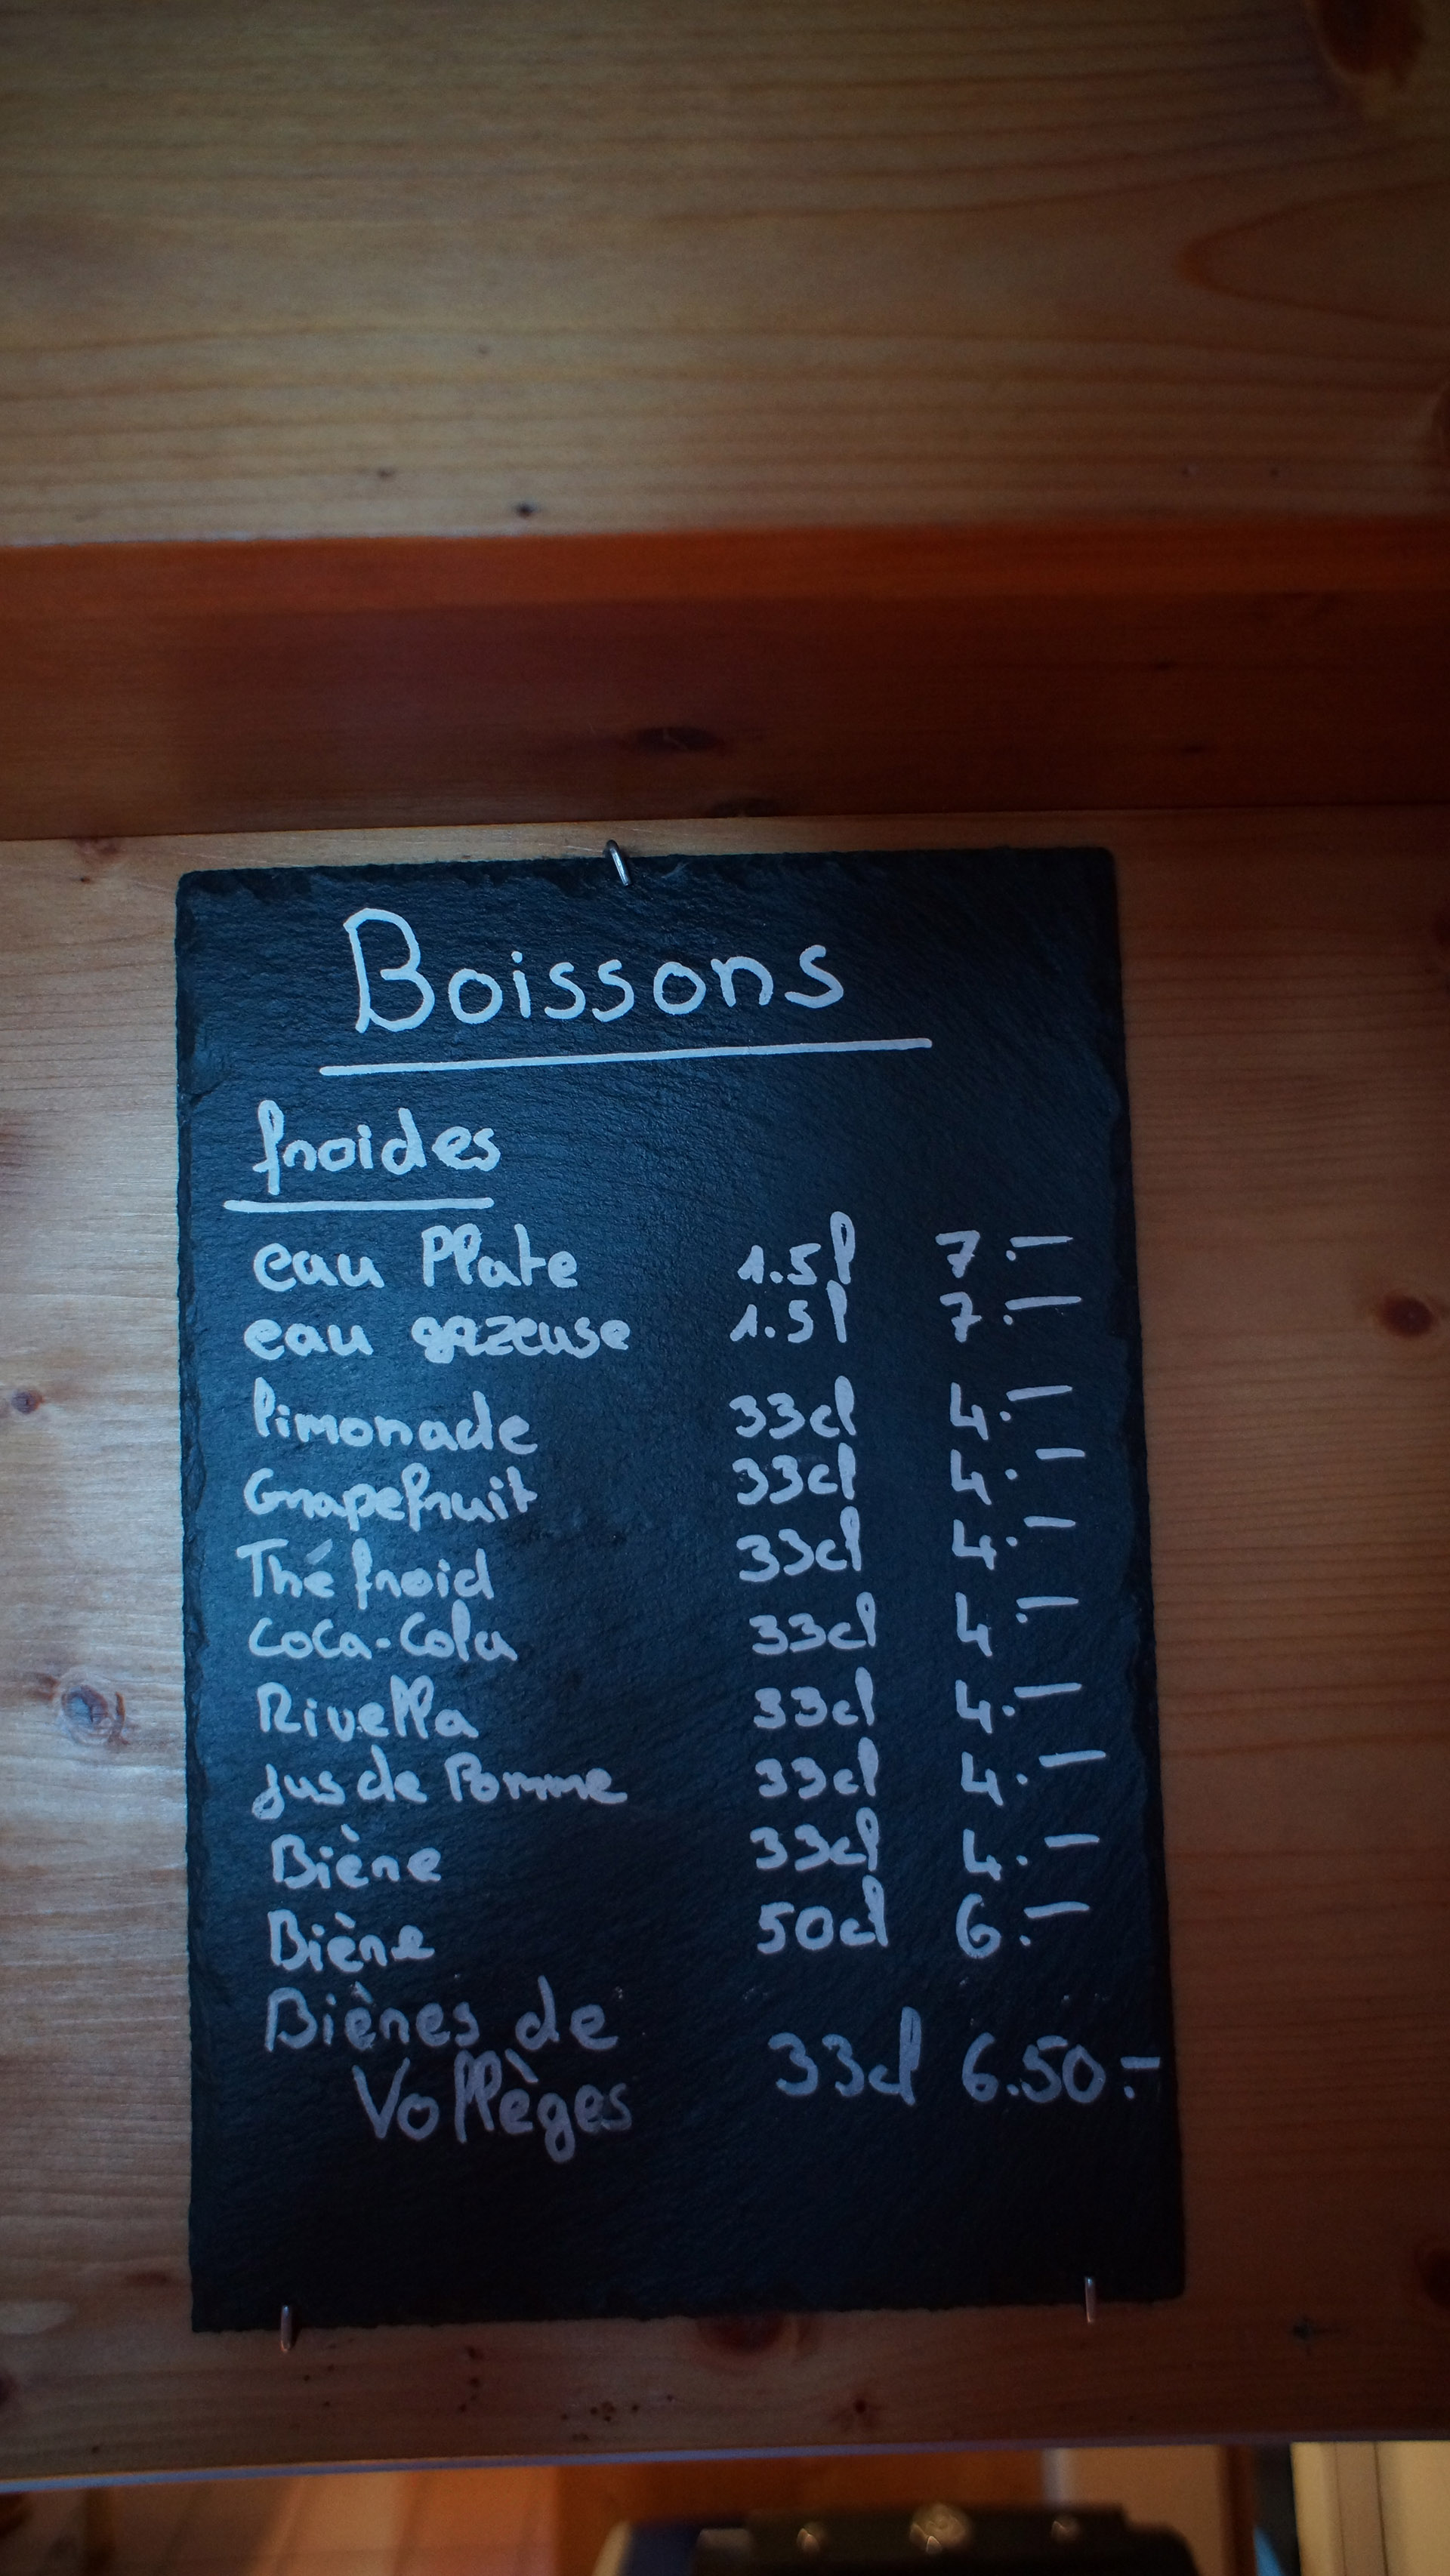 Boissons
froides
eau Plate 1.5l 7.-
eau gazeuse 1.5l 7.-
limonade 33cl 4.-
Grapefruit 33cl 4.-
Thé froid 33cl 4.-
Coca-Cola 33cl 4.-
Rivella 33cl 4.-
jus de Pomme 33cl 4.-
Bière 33cl 4.-
Bière 50cl 6.-
Bières de
Vollèges 33cl 6.50.-